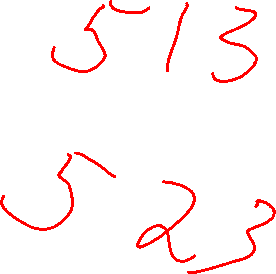 513
523